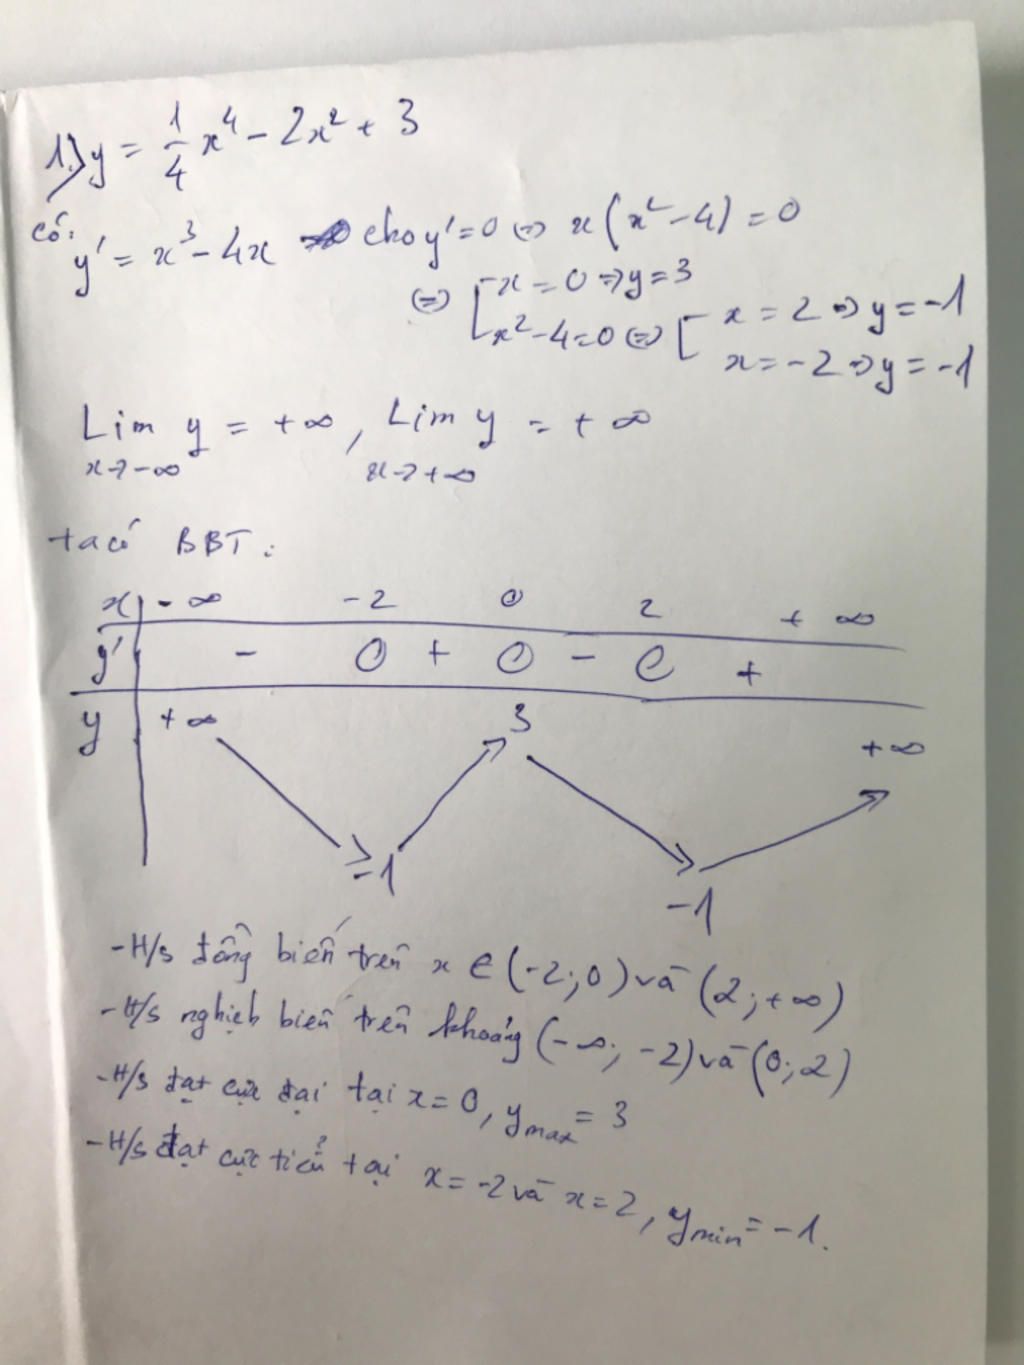 1.) y = 1/4 x⁴ - 2x² + 3
có: y' = x³ - 4x cho y' = 0 ⇔ x(x² - 4) = 0
⇔ [ x = 0 ⇒ y = 3
x² - 4 = 0 ⇔ [ x = 2 ⇒ y = -1
x = -2 ⇒ y = -1
Lim y = +∞, Lim y = +∞
x→-∞ x→+∞
ta có BBT:
x -∞ -2 0 2 +∞
y' - 0 + 0 - 0 +
y +∞ 3 +∞
-1 -1
- H/s đồng biến trên x ∈ (-2; 0) và (2; +∞)
- H/s nghịch biến trên khoảng (-∞; -2) và (0; 2)
- H/s đạt cực đại tại x = 0, y max = 3
- H/s đạt cực tiểu tại x = -2 và x = 2, y min = -1.